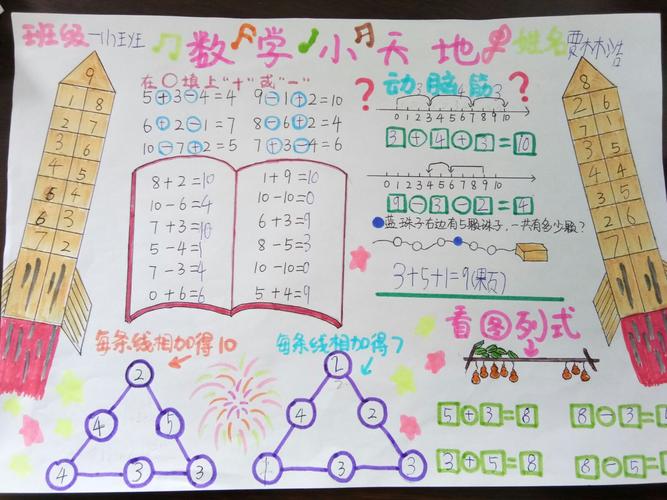 班级
数学小天地
姓名
在○填上"+"或"-"
5+3-4=4 9-1+2=10
6+2-1=7 8-6+2=4
10-7+2=5 7+3-4=6
? 动脑筋 ?
3 4 3
0 1 2 3 4 5 6 7 8 9 10
3+4+3=10
0 1 2 3 4 5 6 7 8 9 10
9-3-2=4
蓝珠子右边有5颗珠子,一共有多少颗?
3+5+1=9(颗)
9
1 8
2 7
3 6
6 3
7 2
8
6 2
7 1
8+2=10 1+9=10
10-6=4 10-10=0
7+3=10 6+3=9
5-4=1 8-5=3
7-3=4 10-10=0
0+6=6 5+4=9
每条线相加得10
2
4 5
4 3 3
每条线相加得7
4 2
3 3
看图列式
5+3=8 8-3=
3+5=8 8-5=